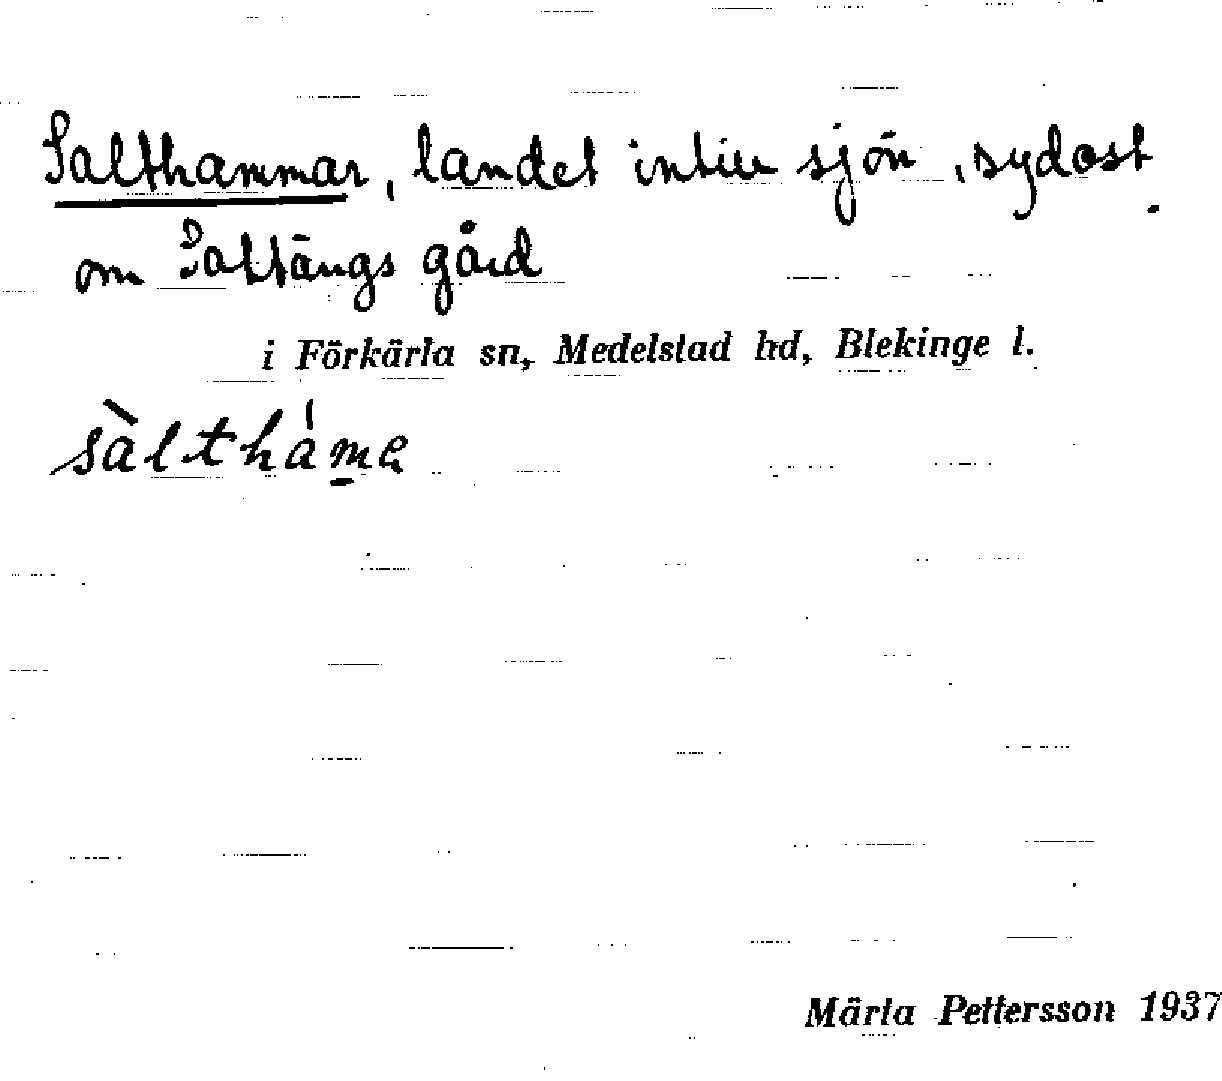 Salthammar, landet intill sjön, sydost
om Saltängs gård
i Förkärla sn, Medelstad hd, Blekinge l.
sàltháma
Märta Pettersson 1937